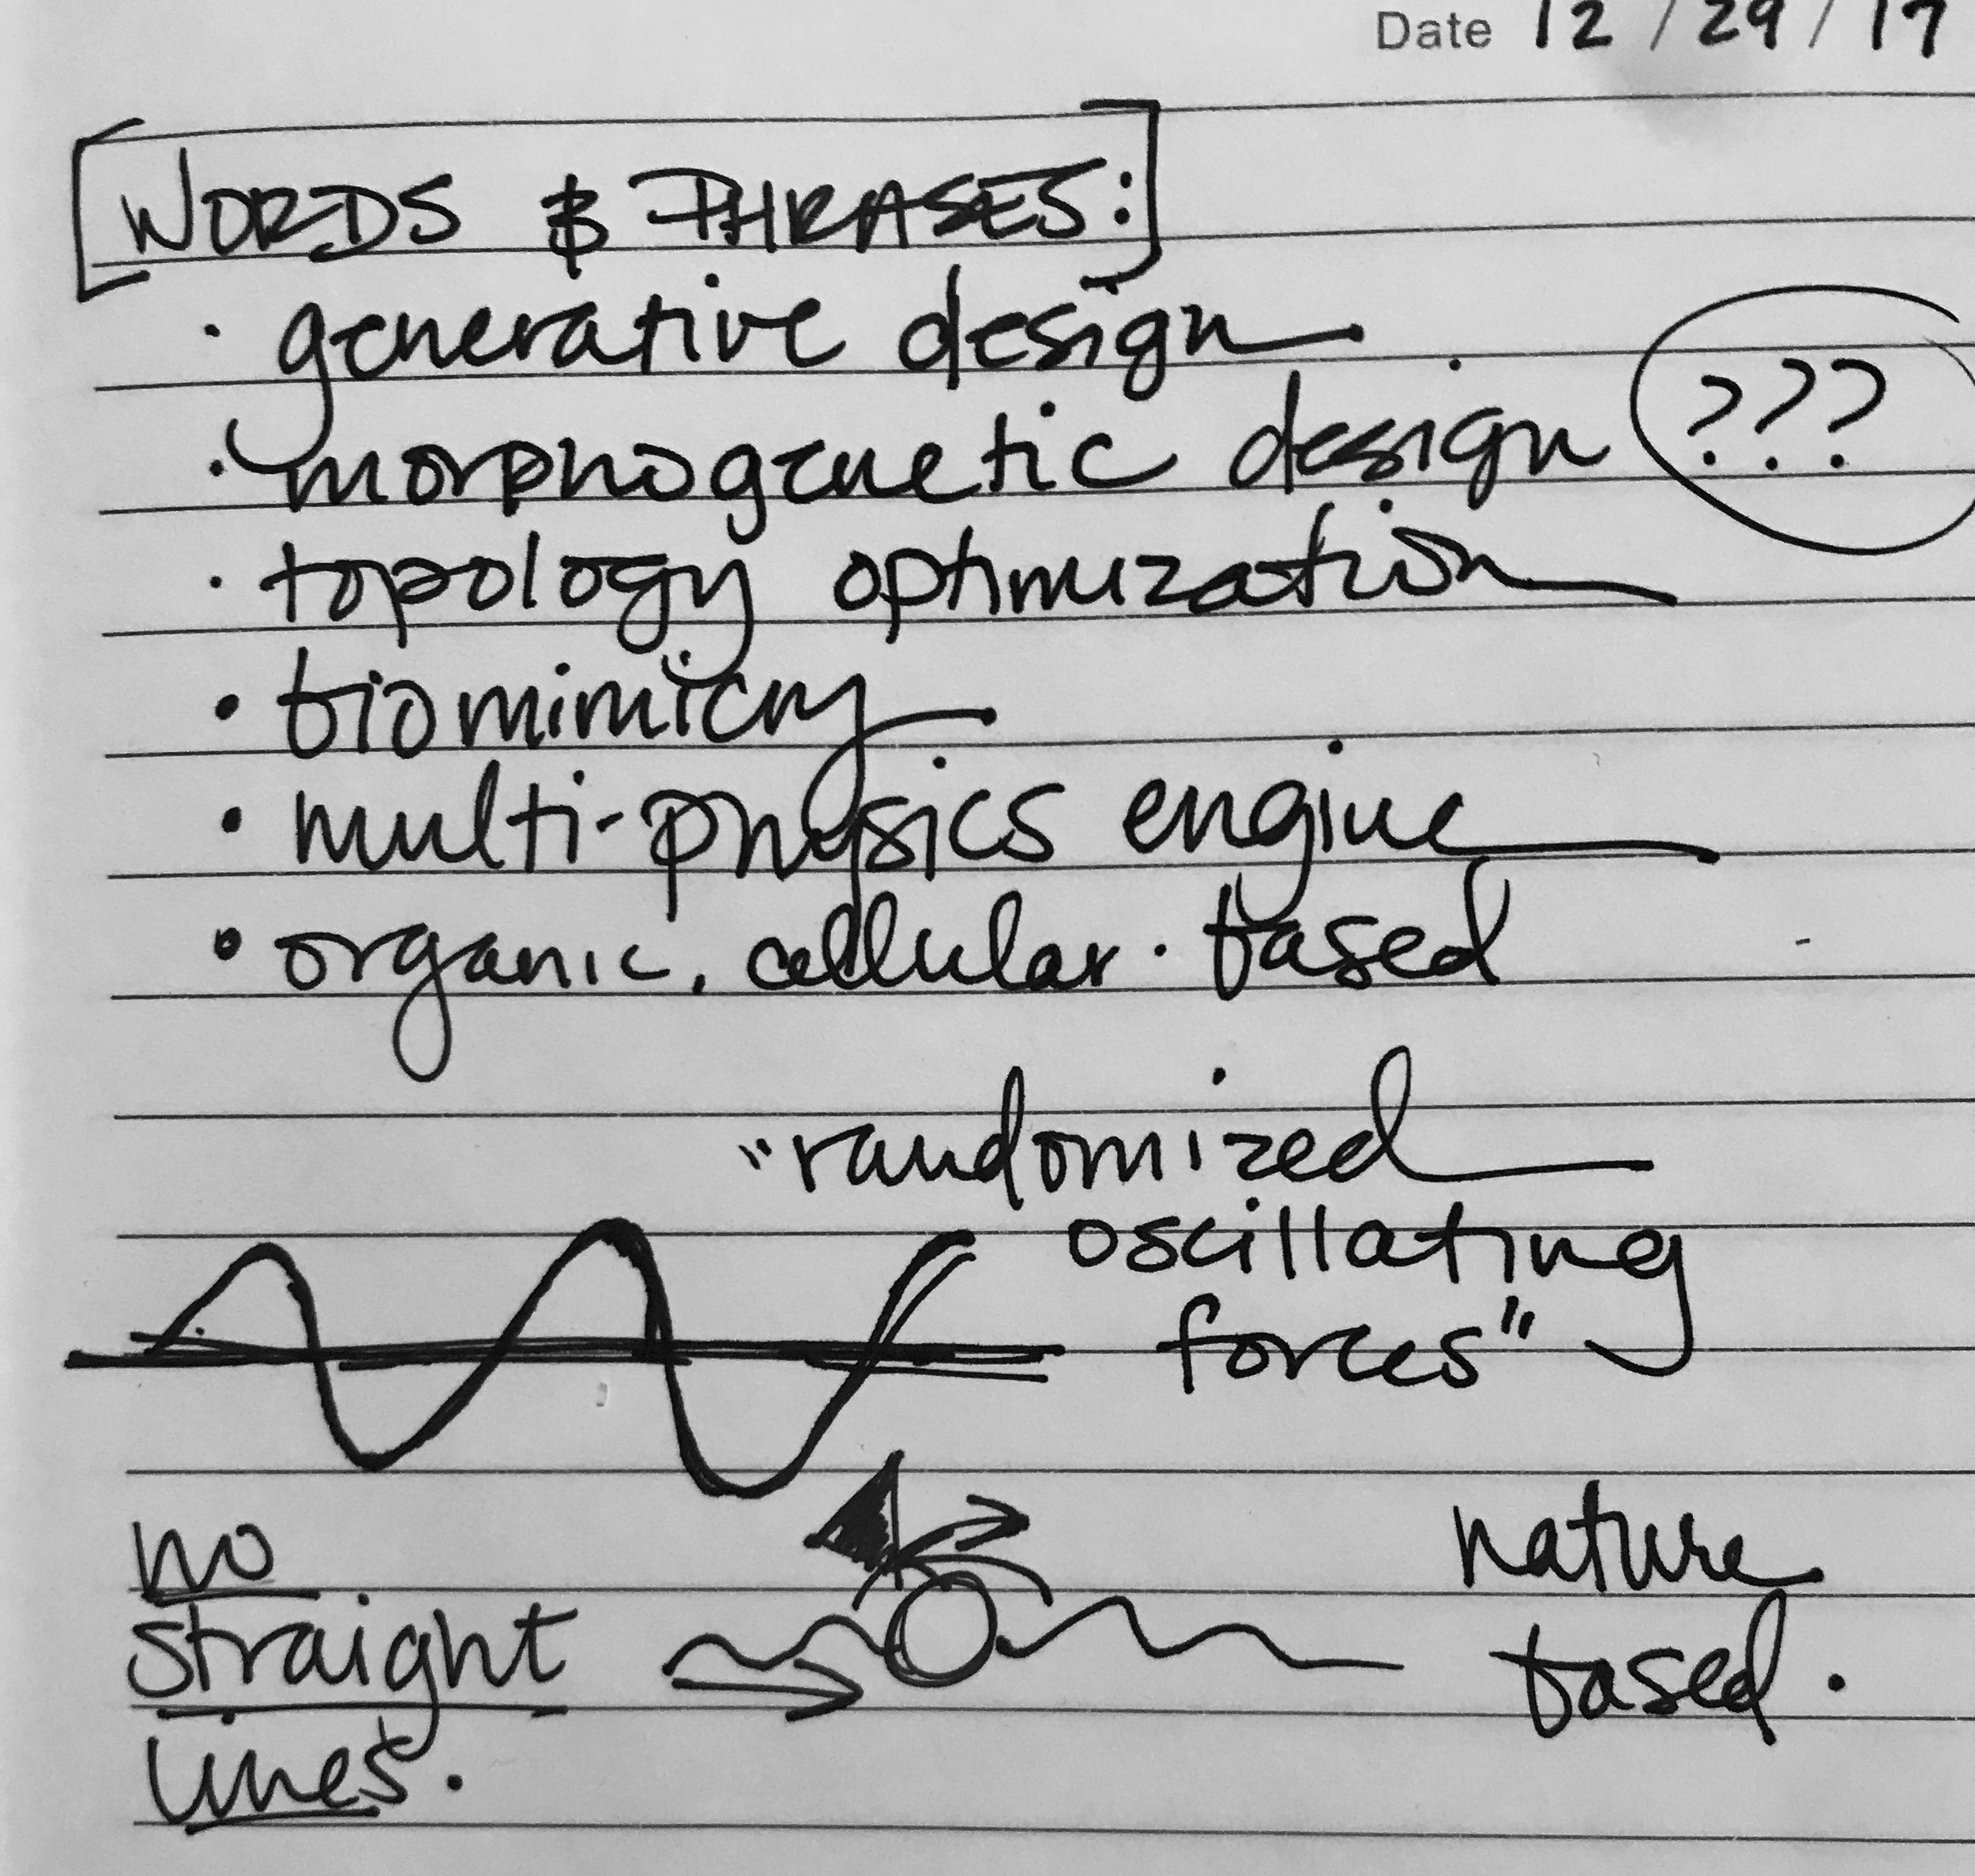 Date 12/29/17
[WORDS & PHRASES:]
· generative design
· morphogenetic design ???
· topology optimization
· biomimicry
· multi-physics engine
· organic. cellular. based
"randomized
oscillating
forces"
no
straight
lines.
nature
based.